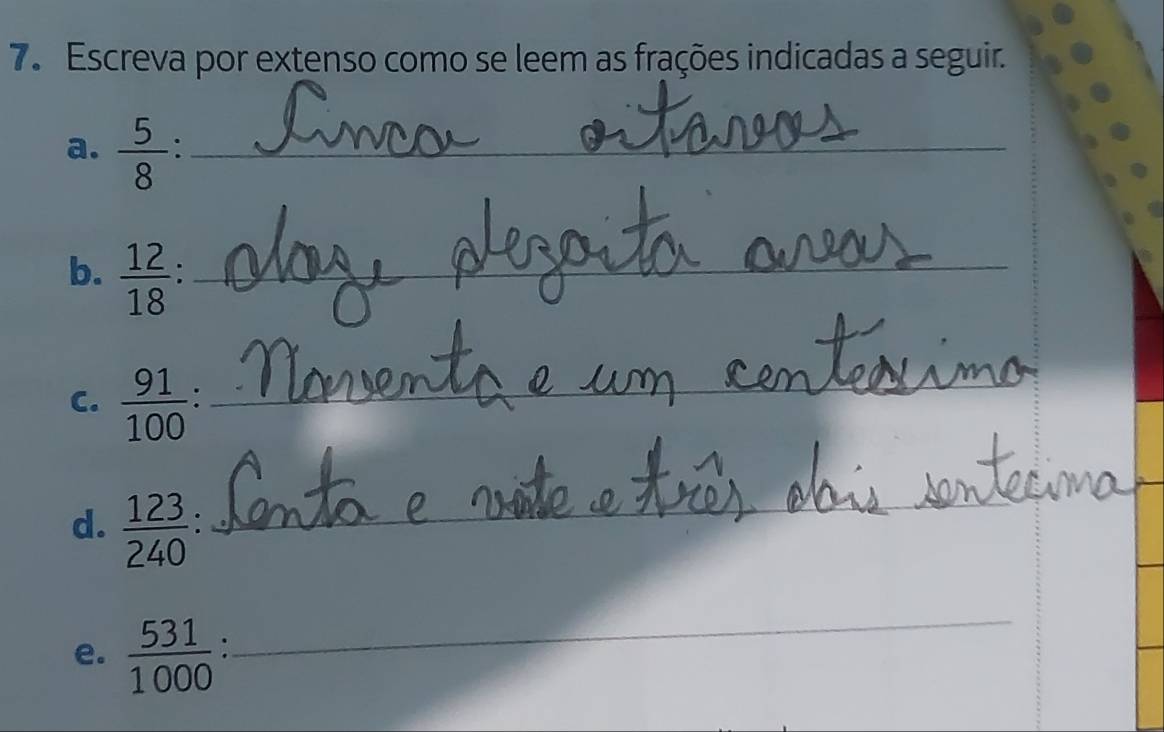 7. Escreva por extenso como se leem as frações indicadas a seguir.
a. 5/8: Cinco oitavos
b. 12/18: doze dezoito avos
c. 91/100: Noventa e um centesimo
d. 123/240: Sento e vinte e três dois sentecimo
e. 531/1000: